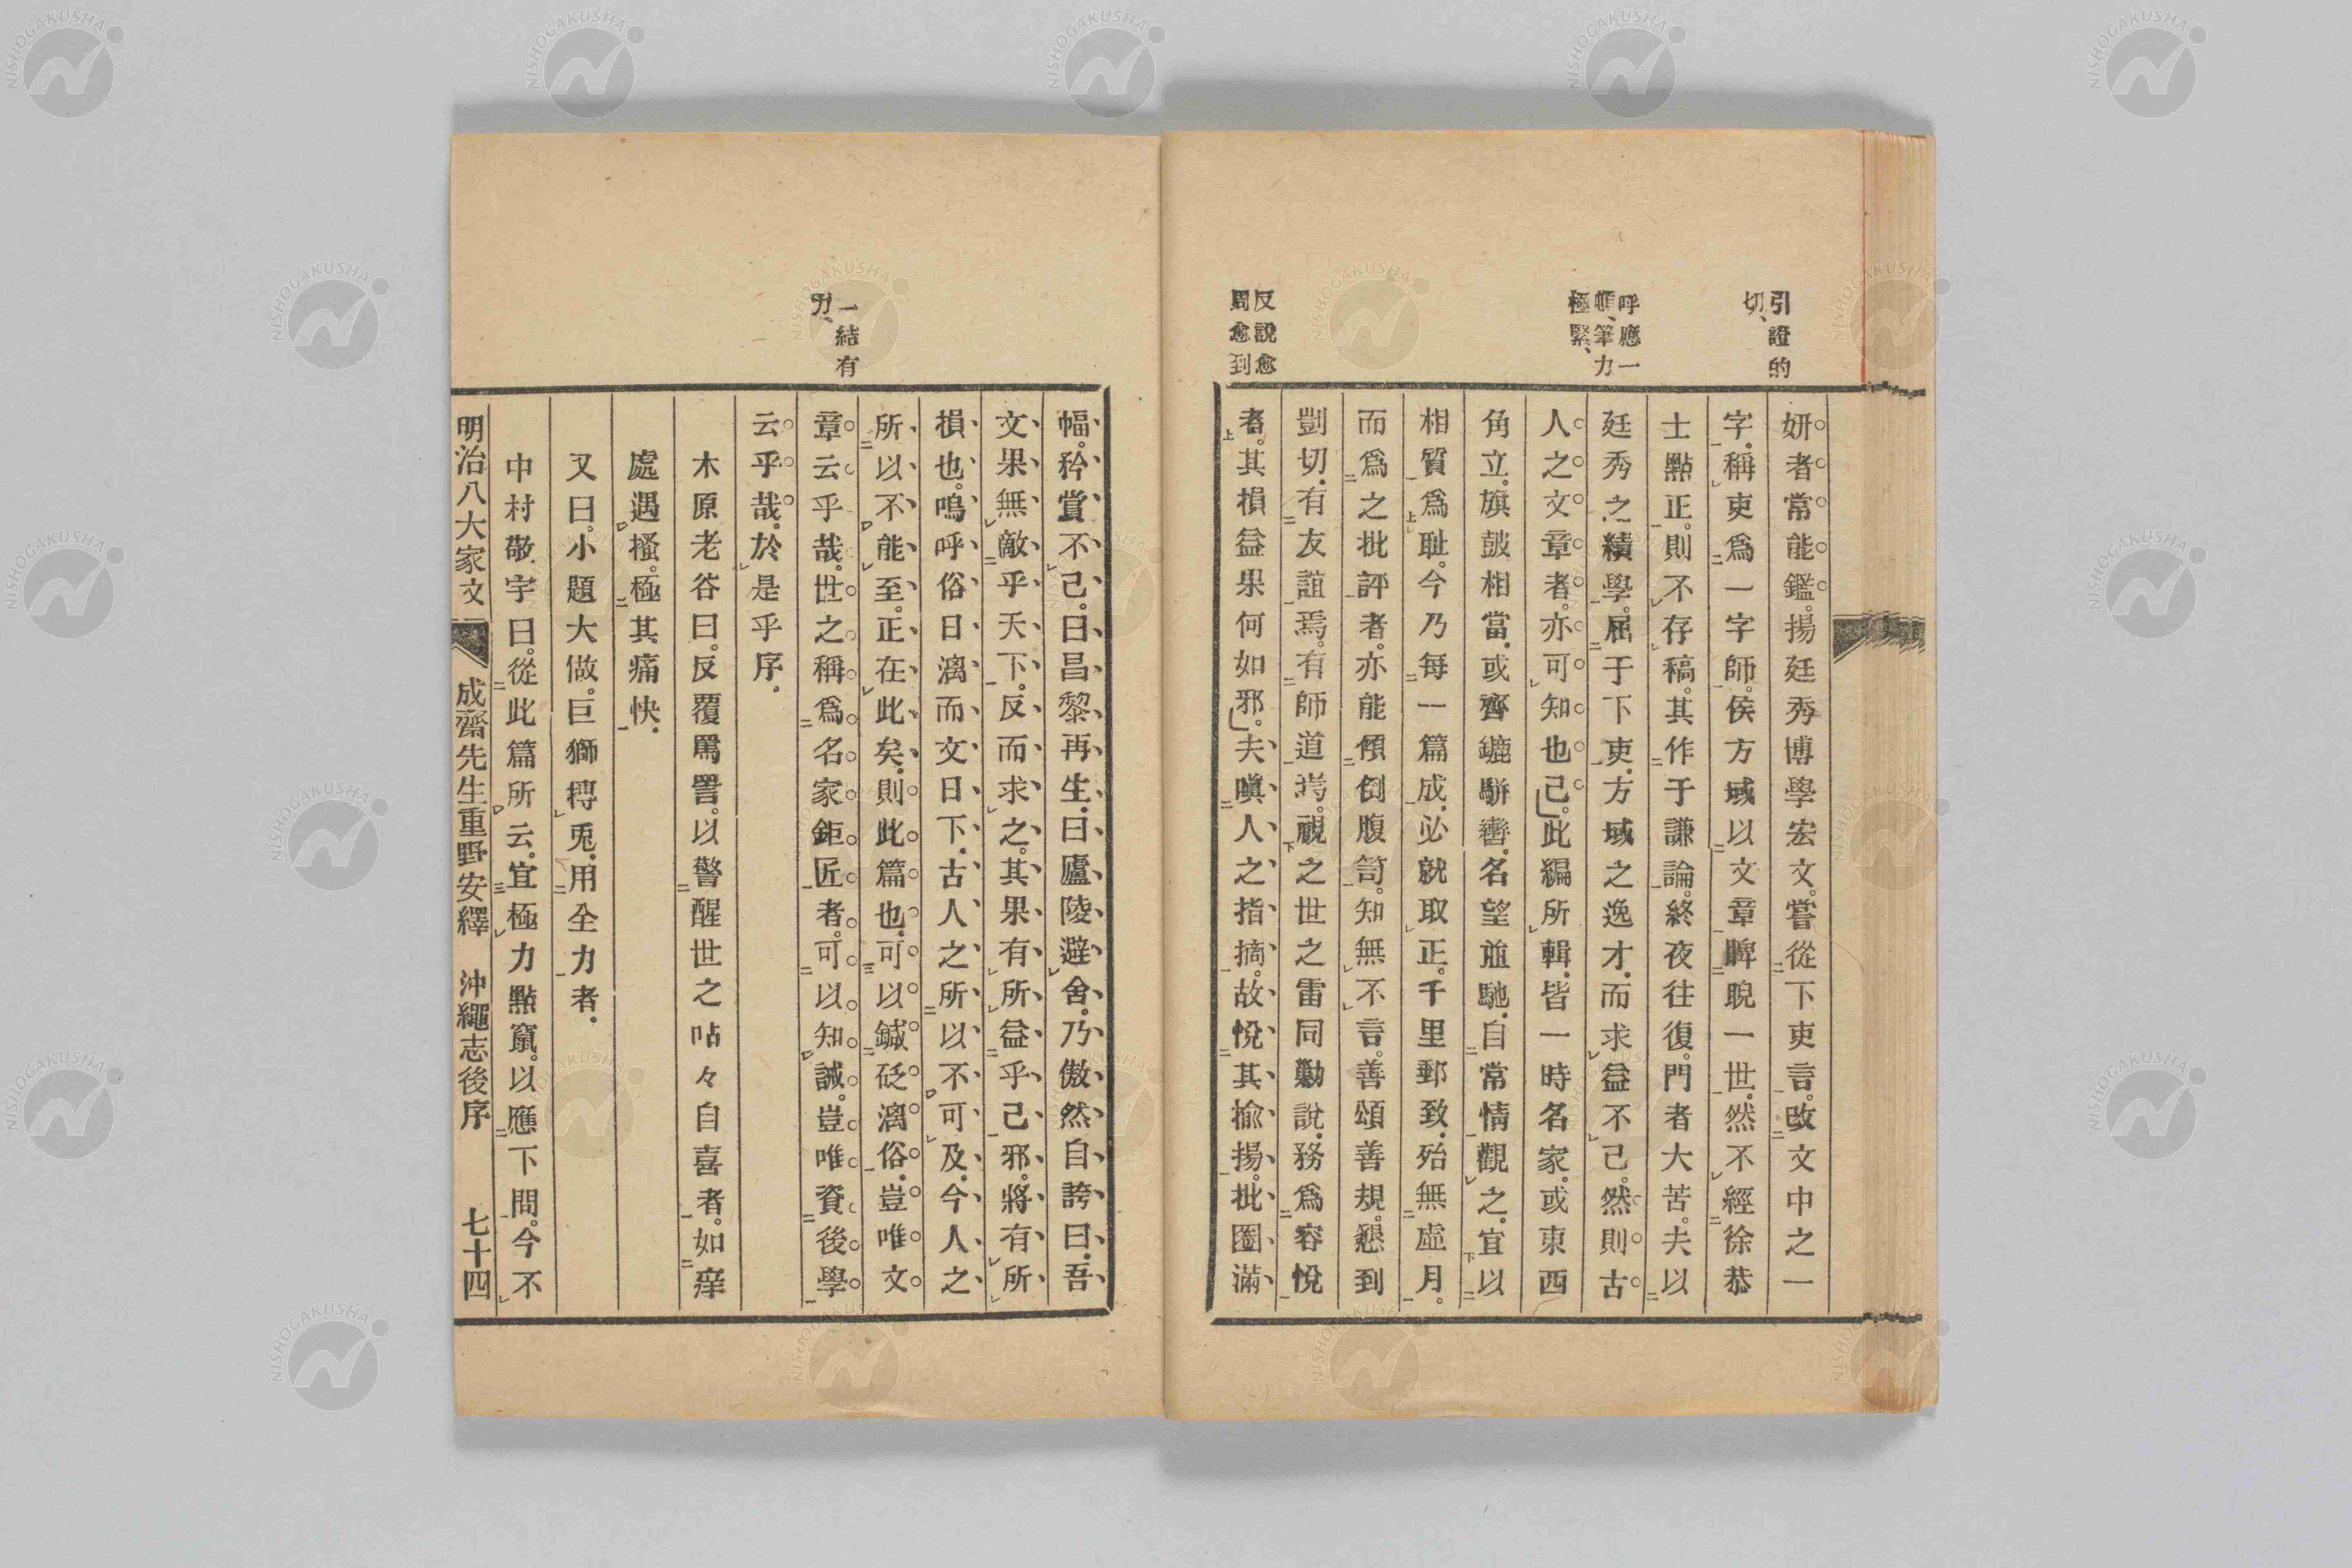 引證的
切、
呼應一
頓、筆力
極緊、
反說愈
周愈到
妍者常能鑑。揚廷秀博學宏文。嘗從下吏言。改文中之一
字。稱吏爲一字師。侯方域以文章睥睨一世。然不經徐恭
士點正。則不存稿。其作于謙論。終夜往復。門者大苦。夫以
廷秀之績學。屈于下吏。方域之逸才。而求益不已。然則古
人之文章者。亦可知也已。此編所輯。皆一時名家。或東西
角立。旗鼓相當。或齊鑣駢轡。名望竝馳。自常情觀之。宜以
相質爲耻。今乃每一篇成。必就取正。千里郵致。殆無虛月。
而爲之批評者。亦能傾倒腹笥。知無不言。善頌善規。懇到
剴切。有友誼焉。有師道焉。視之世之雷同勦說。務爲容悅
者。其損益果何如邪。夫嗔人之指摘。故悅其揄揚。批圈滿
一結有
力、
幅。矜賞不已。曰昌黎再生。曰廬陵避舍。乃傲然自誇曰。吾
文果無敵乎天下。反而求之。其果有所益乎己邪。將有所
損也。嗚呼俗日漓而文日下。古人之所以不可及。今人之
所以不能至。正在此矣。則此篇也。可以鍼砭漓俗。豈唯文
章云乎哉。世之稱爲名家鉅匠者。可以知誡。豈唯資後學
云乎哉。於是乎序。
木原老谷曰。反覆罵詈。以警醒世之呫々自喜者。如痒
處遇搔。極其痛快。
又曰。小題大做。巨獅搏兎。用全力者。
中村敬宇曰。從此篇所云。宜極力點竄。以應下問。今不
明治八大家文 成齋先生重野安繹 沖繩志後序 七十四